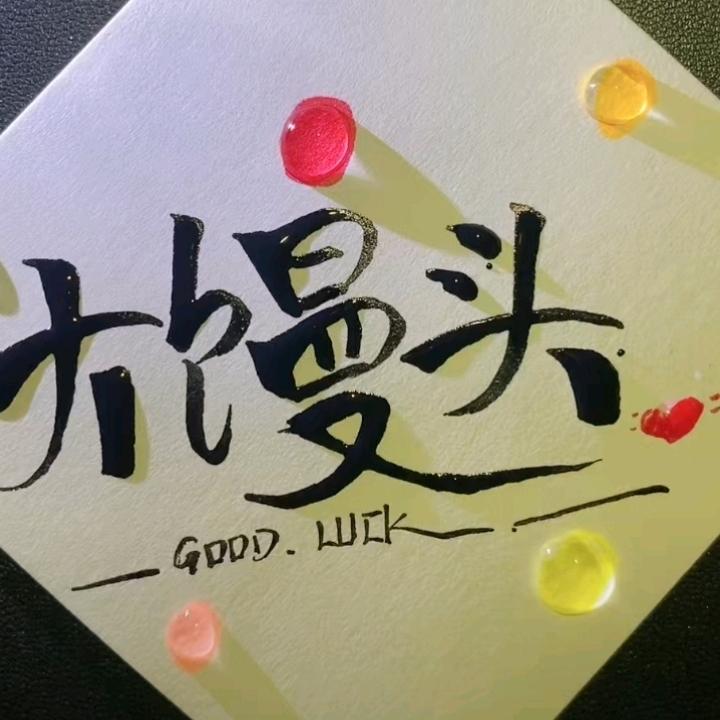 大馒头
GOOD. LUCK